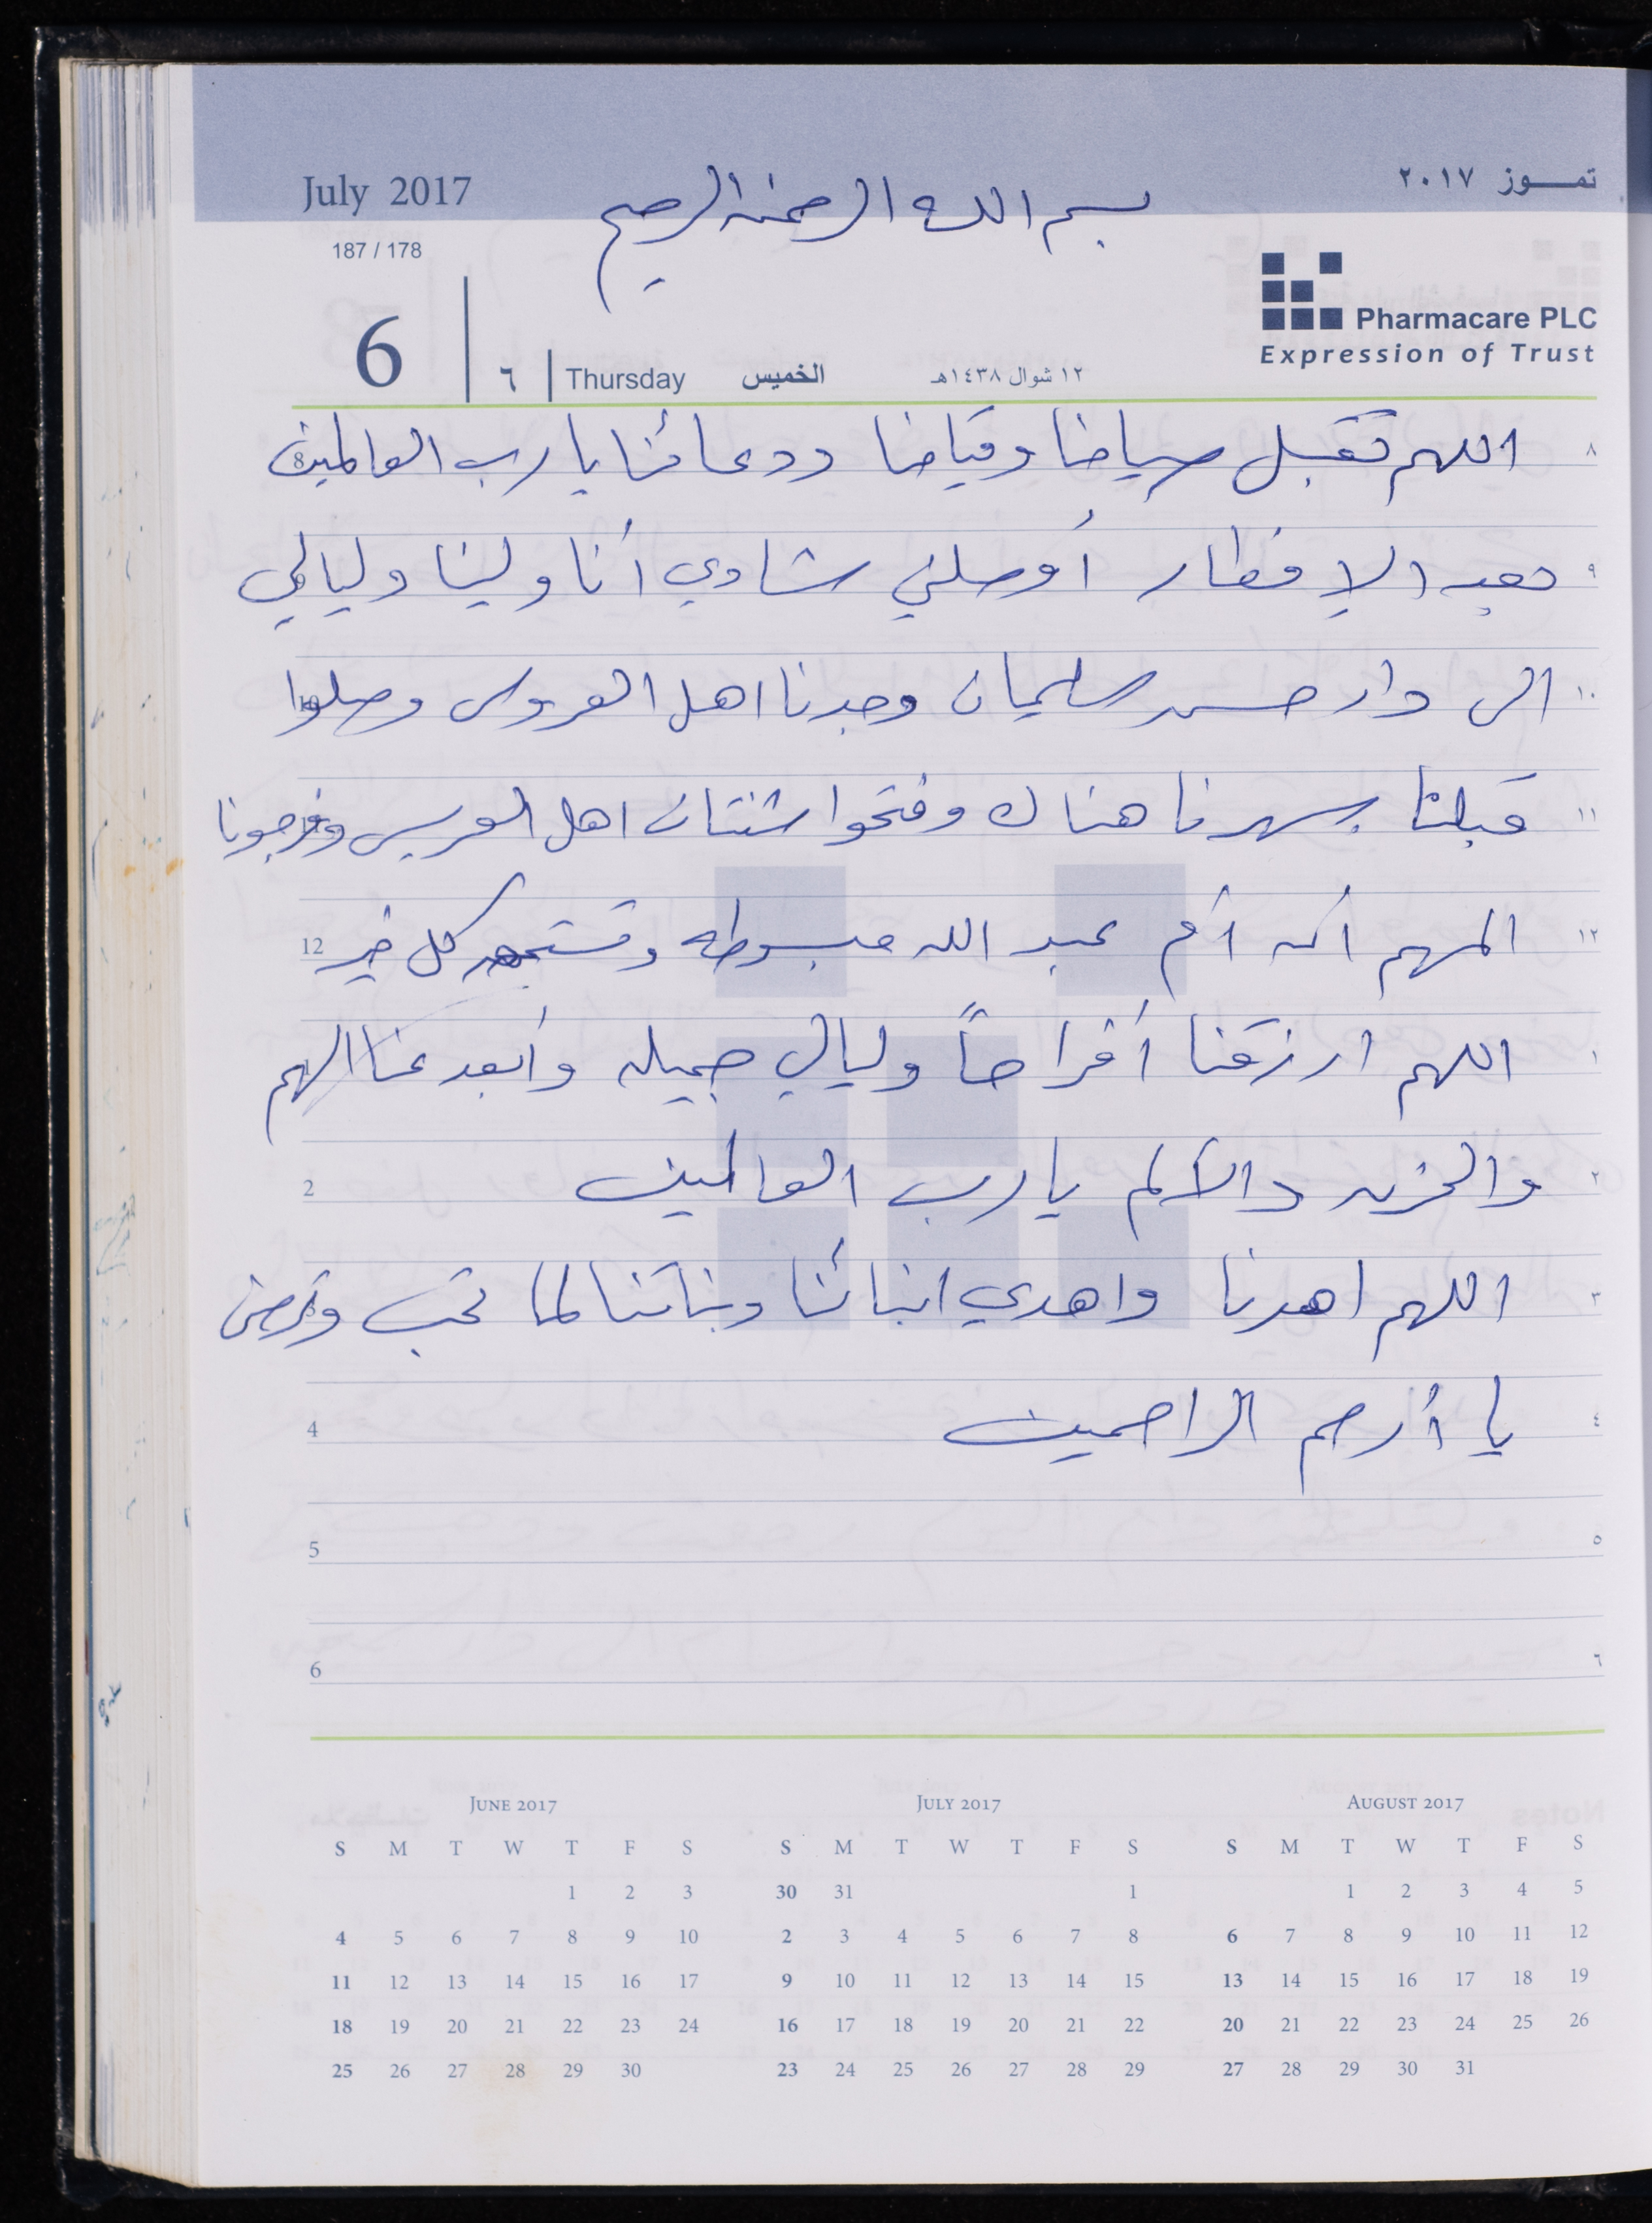 July 2017
تمـــوز ٢٠١٧
بسم الله الرحمن الرحيم
187 / 178
Pharmacare PLC
Expression of Trust
6 ٦ Thursday الخميس ١٢ شوال ١٤٣٨هـ
٨ اللهم تقبل صيامنا وقيامنا ودعائنا يا رب العالمين 8
٩ بعد الإفطار أوصلني شادي أنا ولينا وليالي
١٠ الى دار حسن سليمان وجدنا اهل العروس وصلوا 10
١١ قبلنا سهرنا هناك وفتحوا شنتان اهل العريس وفرجونا
١٢ المهم أنه أم عبد الله مبسوطه وتستجهد كل خير 12
١ اللهم ارزقنا أفراحاً وليالي جميله وأبعد عنا الهم
٢ والحزن والألم يا رب العالمين 2
٣ اللهم اهدنا واهدي ابنائنا وبناتنا لما تحب وترضى
٤ يا أرحم الراحمين 4
٥ 5
٦ 6
JUNE 2017
S M T W T F S
1 2 3
4 5 6 7 8 9 10
11 12 13 14 15 16 17
18 19 20 21 22 23 24
25 26 27 28 29 30
JULY 2017
S M T W T F S
30 31 1
2 3 4 5 6 7 8
9 10 11 12 13 14 15
16 17 18 19 20 21 22
23 24 25 26 27 28 29
AUGUST 2017
S M T W T F S
1 2 3 4 5
6 7 8 9 10 11 12
13 14 15 16 17 18 19
20 21 22 23 24 25 26
27 28 29 30 31